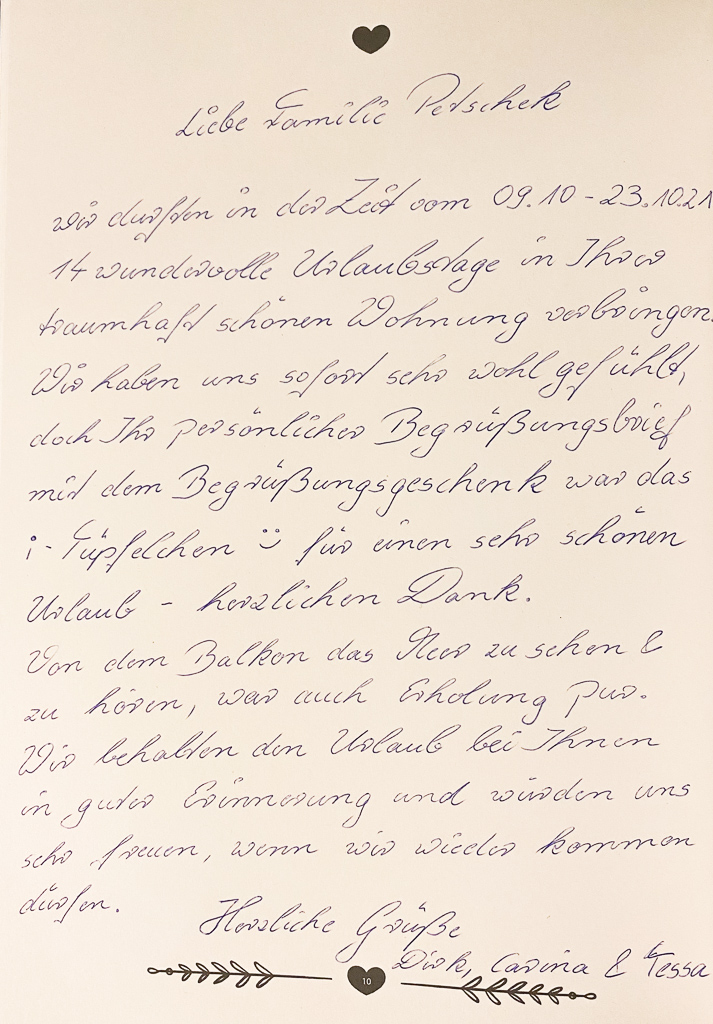 Liebe Familie Petschek
wir durften in der Zeit vom 09.10 - 23.10.21
14 wundervolle Urlaubstage in Ihrer
traumhaft schönen Wohnung verbringen.
Wir haben uns sofort sehr wohl gefühlt,
doch Ihr persönlicher Begrüßungsbrief
mit dem Begrüßungsgeschenk war das
i-Tüpfelchen ü für einen sehr schönen
Urlaub - herzlichen Dank.
Von dem Balkon das Meer zu sehen &
zu hören, war auch Erholung pur.
Wir behalten den Urlaub bei Ihnen
in guter Erinnerung und würden uns
sehr freuen, wenn wir wieder kommen
dürfen.
Herzliche Grüße
Dirk, Carina & Tessa
10